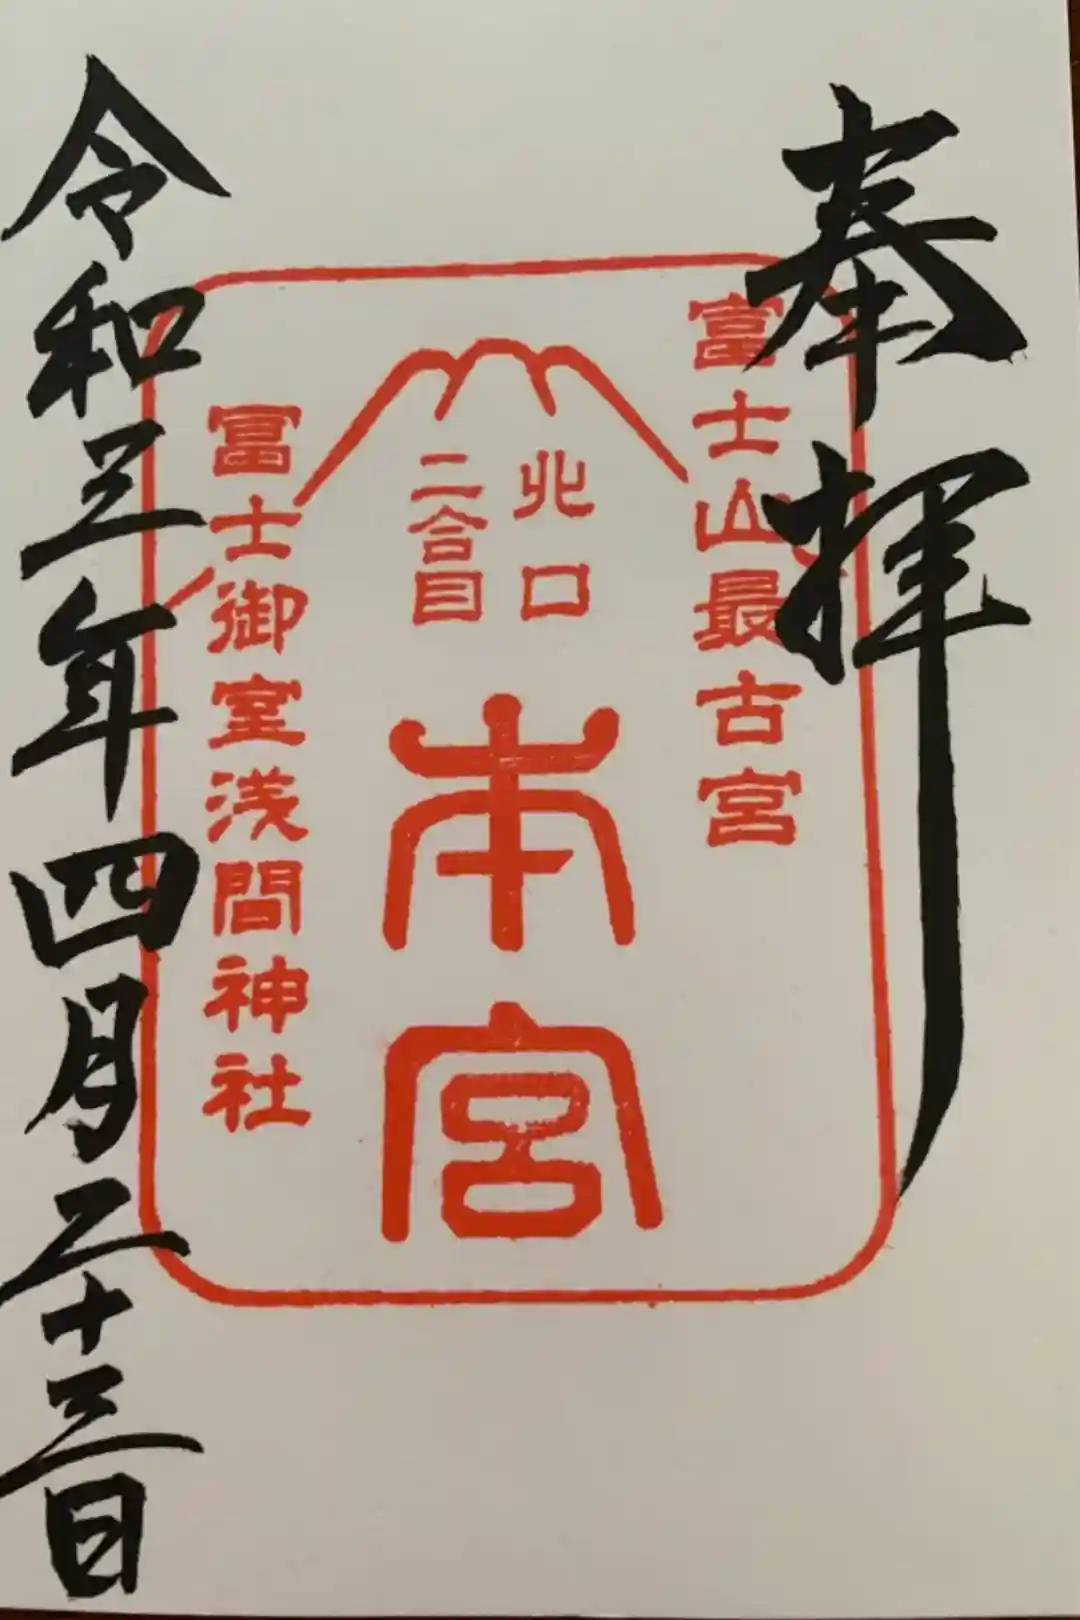 奉拝
冨士山最古宮
北口
二合目
本宮
冨士御室浅間神社
令和三年四月二十三日